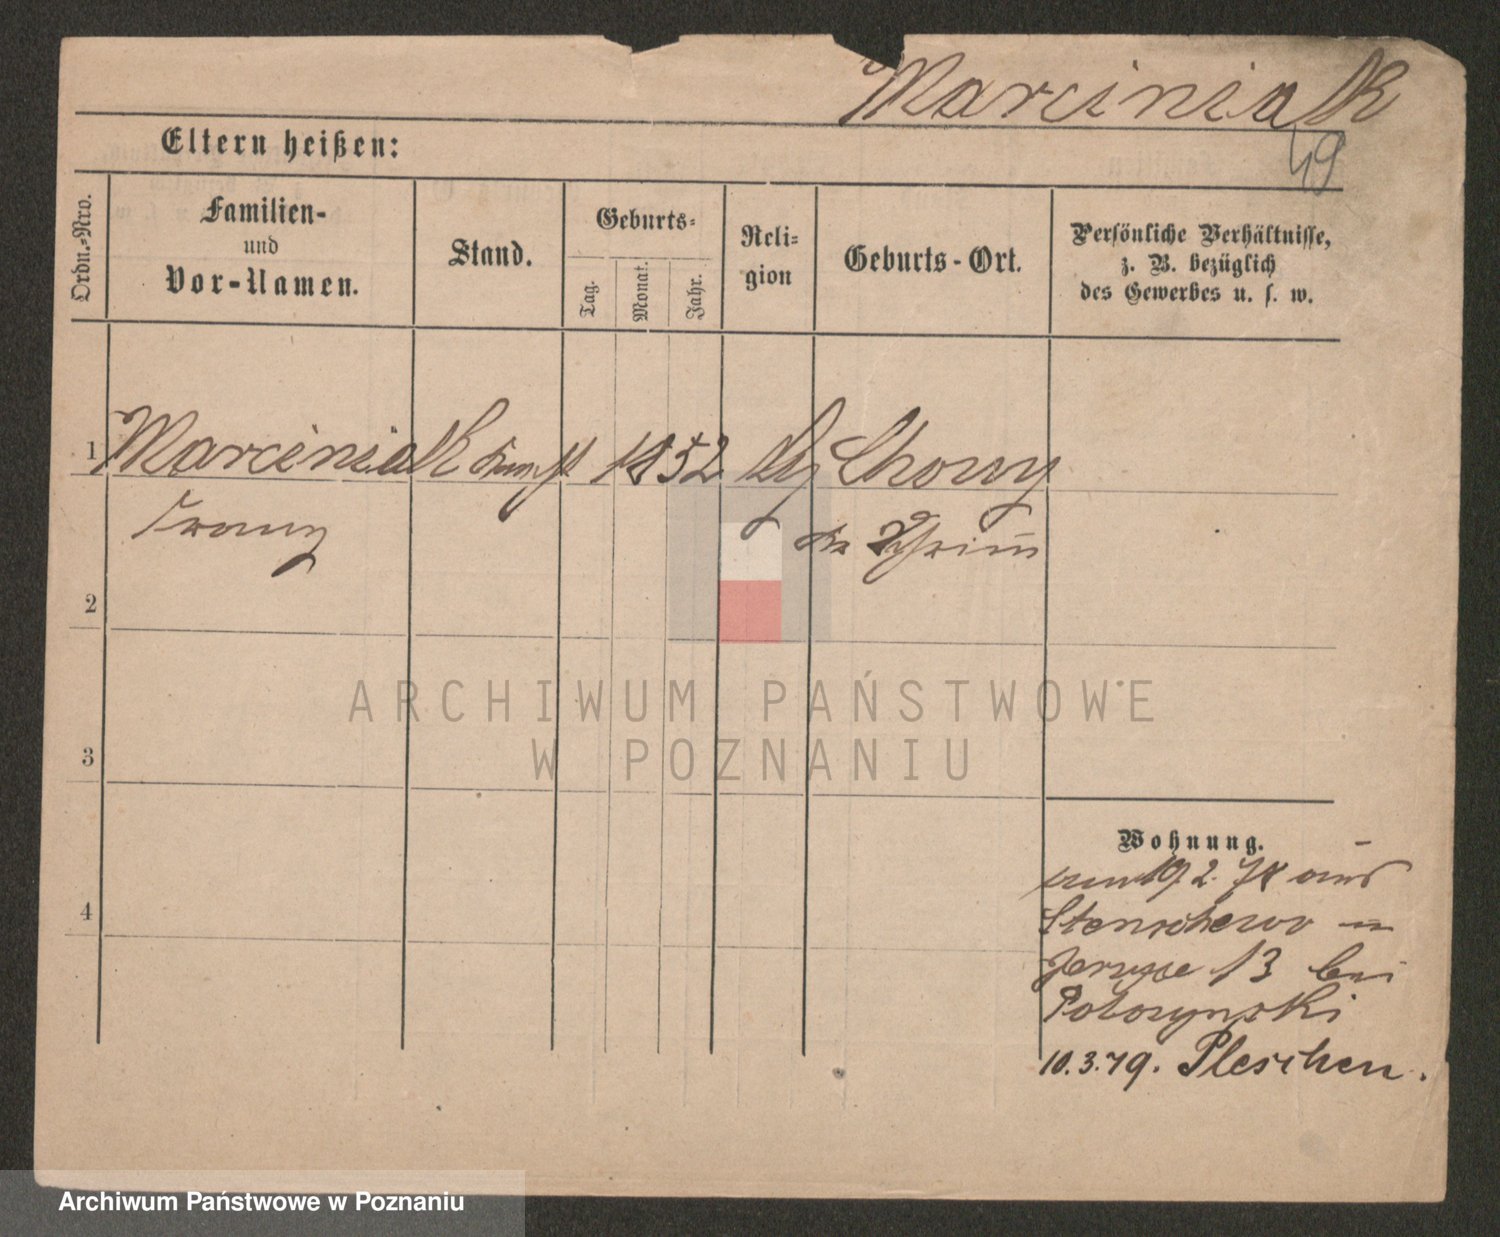 Marciniak
49
Eltern heißen:
Ordn.=Nro.
Familien-
und
Vor-Namen.
Stand.
Geburts=
Tag.
Monat.
Jahr.
Reli=
gion
Geburts-Ort.
Persönliche Verhältnisse,
z. B. bezüglich
des Gewerbes u. s. w.
1 Marciniak 1852
Franz
2
3
4
Wohnung.
2. 78 aus
Stenschewo in
13 bei
10.3.79. Pleschen.
ARCHIWUM PAŃSTWOWE
W POZNANIU
Archiwum Państwowe w Poznaniu